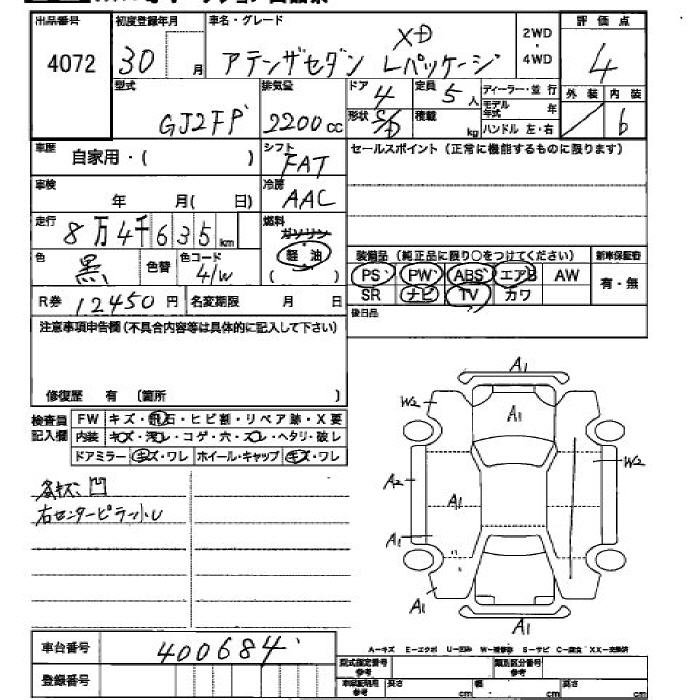 出品番号 初度登録年月 車名・グレード 2WD・4WD 評価点
4072 30 月 アテンザセダン XD Lパッケージ 4
型式 排気量 ドア 4 定員 5人 ディーラー・並行 外装 内装
GJ2FP 2200cc 形状 S/D 積載 kg モデル年式 年 ハンドル 左・右 6
車歴 自家用・( ) シフト FAT セールスポイント(正常に機能するものに限ります)
車検 年 月( 日) 冷房 AAC
走行 8万4千635km 燃料 ガソリン 軽油 ( )
色 黒 色替 色コード 41W
装備品(純正品に限り○をつけてください) 新車保証書
PS PW ABS エアB AW 有・無
SR ナビ TV カワ
R券 12450円 名変期限 月 日 後日品
注意事項申告欄(不具合内容等は具体的に記入して下さい)
修復歴 有 (箇所 )
検査員記入欄 FW キズ・飛石・ヒビ割・リペア跡・X要
内装 キズ・汚レ・コゲ・穴・スレ・ヘタリ・破レ
ドアミラー キズ・ワレ ホイール・キャップ キズ・ワレ
各キズ、凹
右センターピラー小U
A1
W2
A1
W2
A2
A1
A1
A1
A1
車台番号 400684
登録番号
A-キズ E-エクボ U-凹み W-補修跡 S-サビ C-腐食 XX-交換済
型式指定番号 参考 類別区分番号 参考
車庫証明用 参考 長さ cm 幅 cm 高さ cm